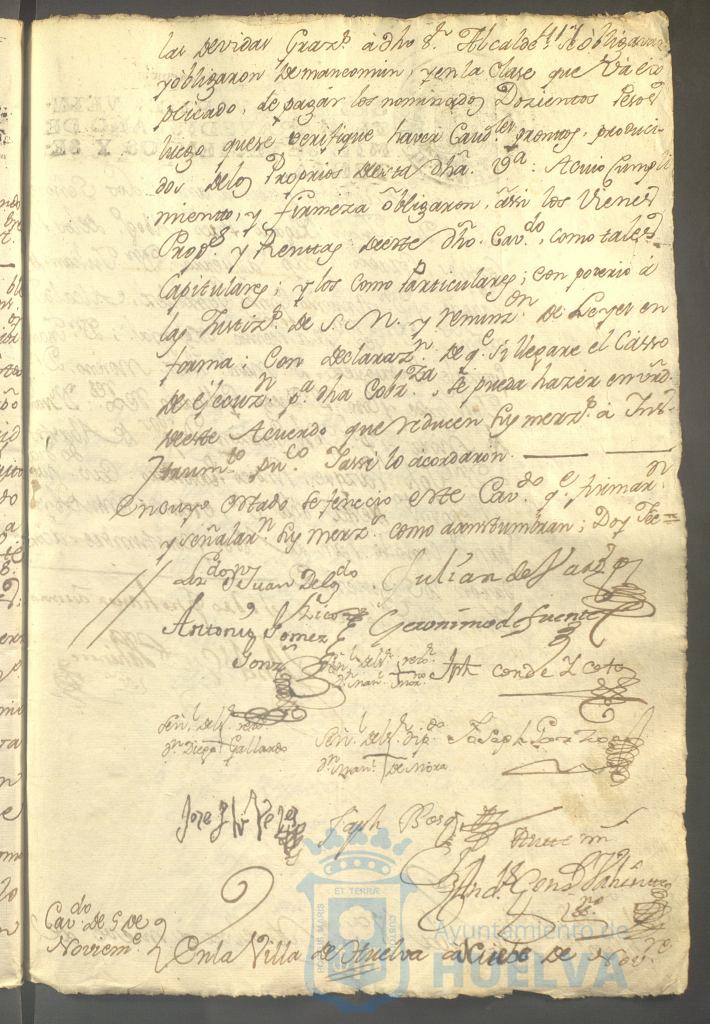 las devidas Graz.s â dho S.r Alcalde, se obligavan
y obligaron de mancomun, y en la Clase que va ex
plicado, de pagar los nominados Dozientos Pesos
luego que se verifique haver Caud.les promtos, produci-
dos delos Proprios desta dhâ. V.a: A cuio Cumpli
miento, y firmeza ôbligaron, âssi los Vienes
Prop.s y Renttas deeste dhô. Cav.do, como tales
Capitulares; y los como Particulares; con poderio â
las Justiz.s de S. M. y renunz.on de Leyes en
forma; Con declaraz.n de q.e si llegare el Casso
de Ejecuz.n p.a dha Cobr.za, se pueda hazer en vrd.
deeste Acuerdo que reducen sus merz.s â Ins-
trum.to pu.co Yassi lo acordaron.
En cuyo estado se fenecio este Cav.do q.e firmar.n
y señalar.n sus merz.s como acostumbran; Doy Fee=
Juan Delg.do
Julian de
Antonio Gomez
Geronimo de fuentes
Jph conde
Señ.l del S.r rexor.
D.n Diego Gallardo
Señ.l del S.r dip.do
D.n Man.l de Mora
Joseph
Joseph
Ante mi
Cav.do de 5 de
Noviem.e
En la Villa de Huelva â de Nov.re
ET TERRA
PORTUS MARIS
CUSTODIA
Ayuntamiento de
HUELVA